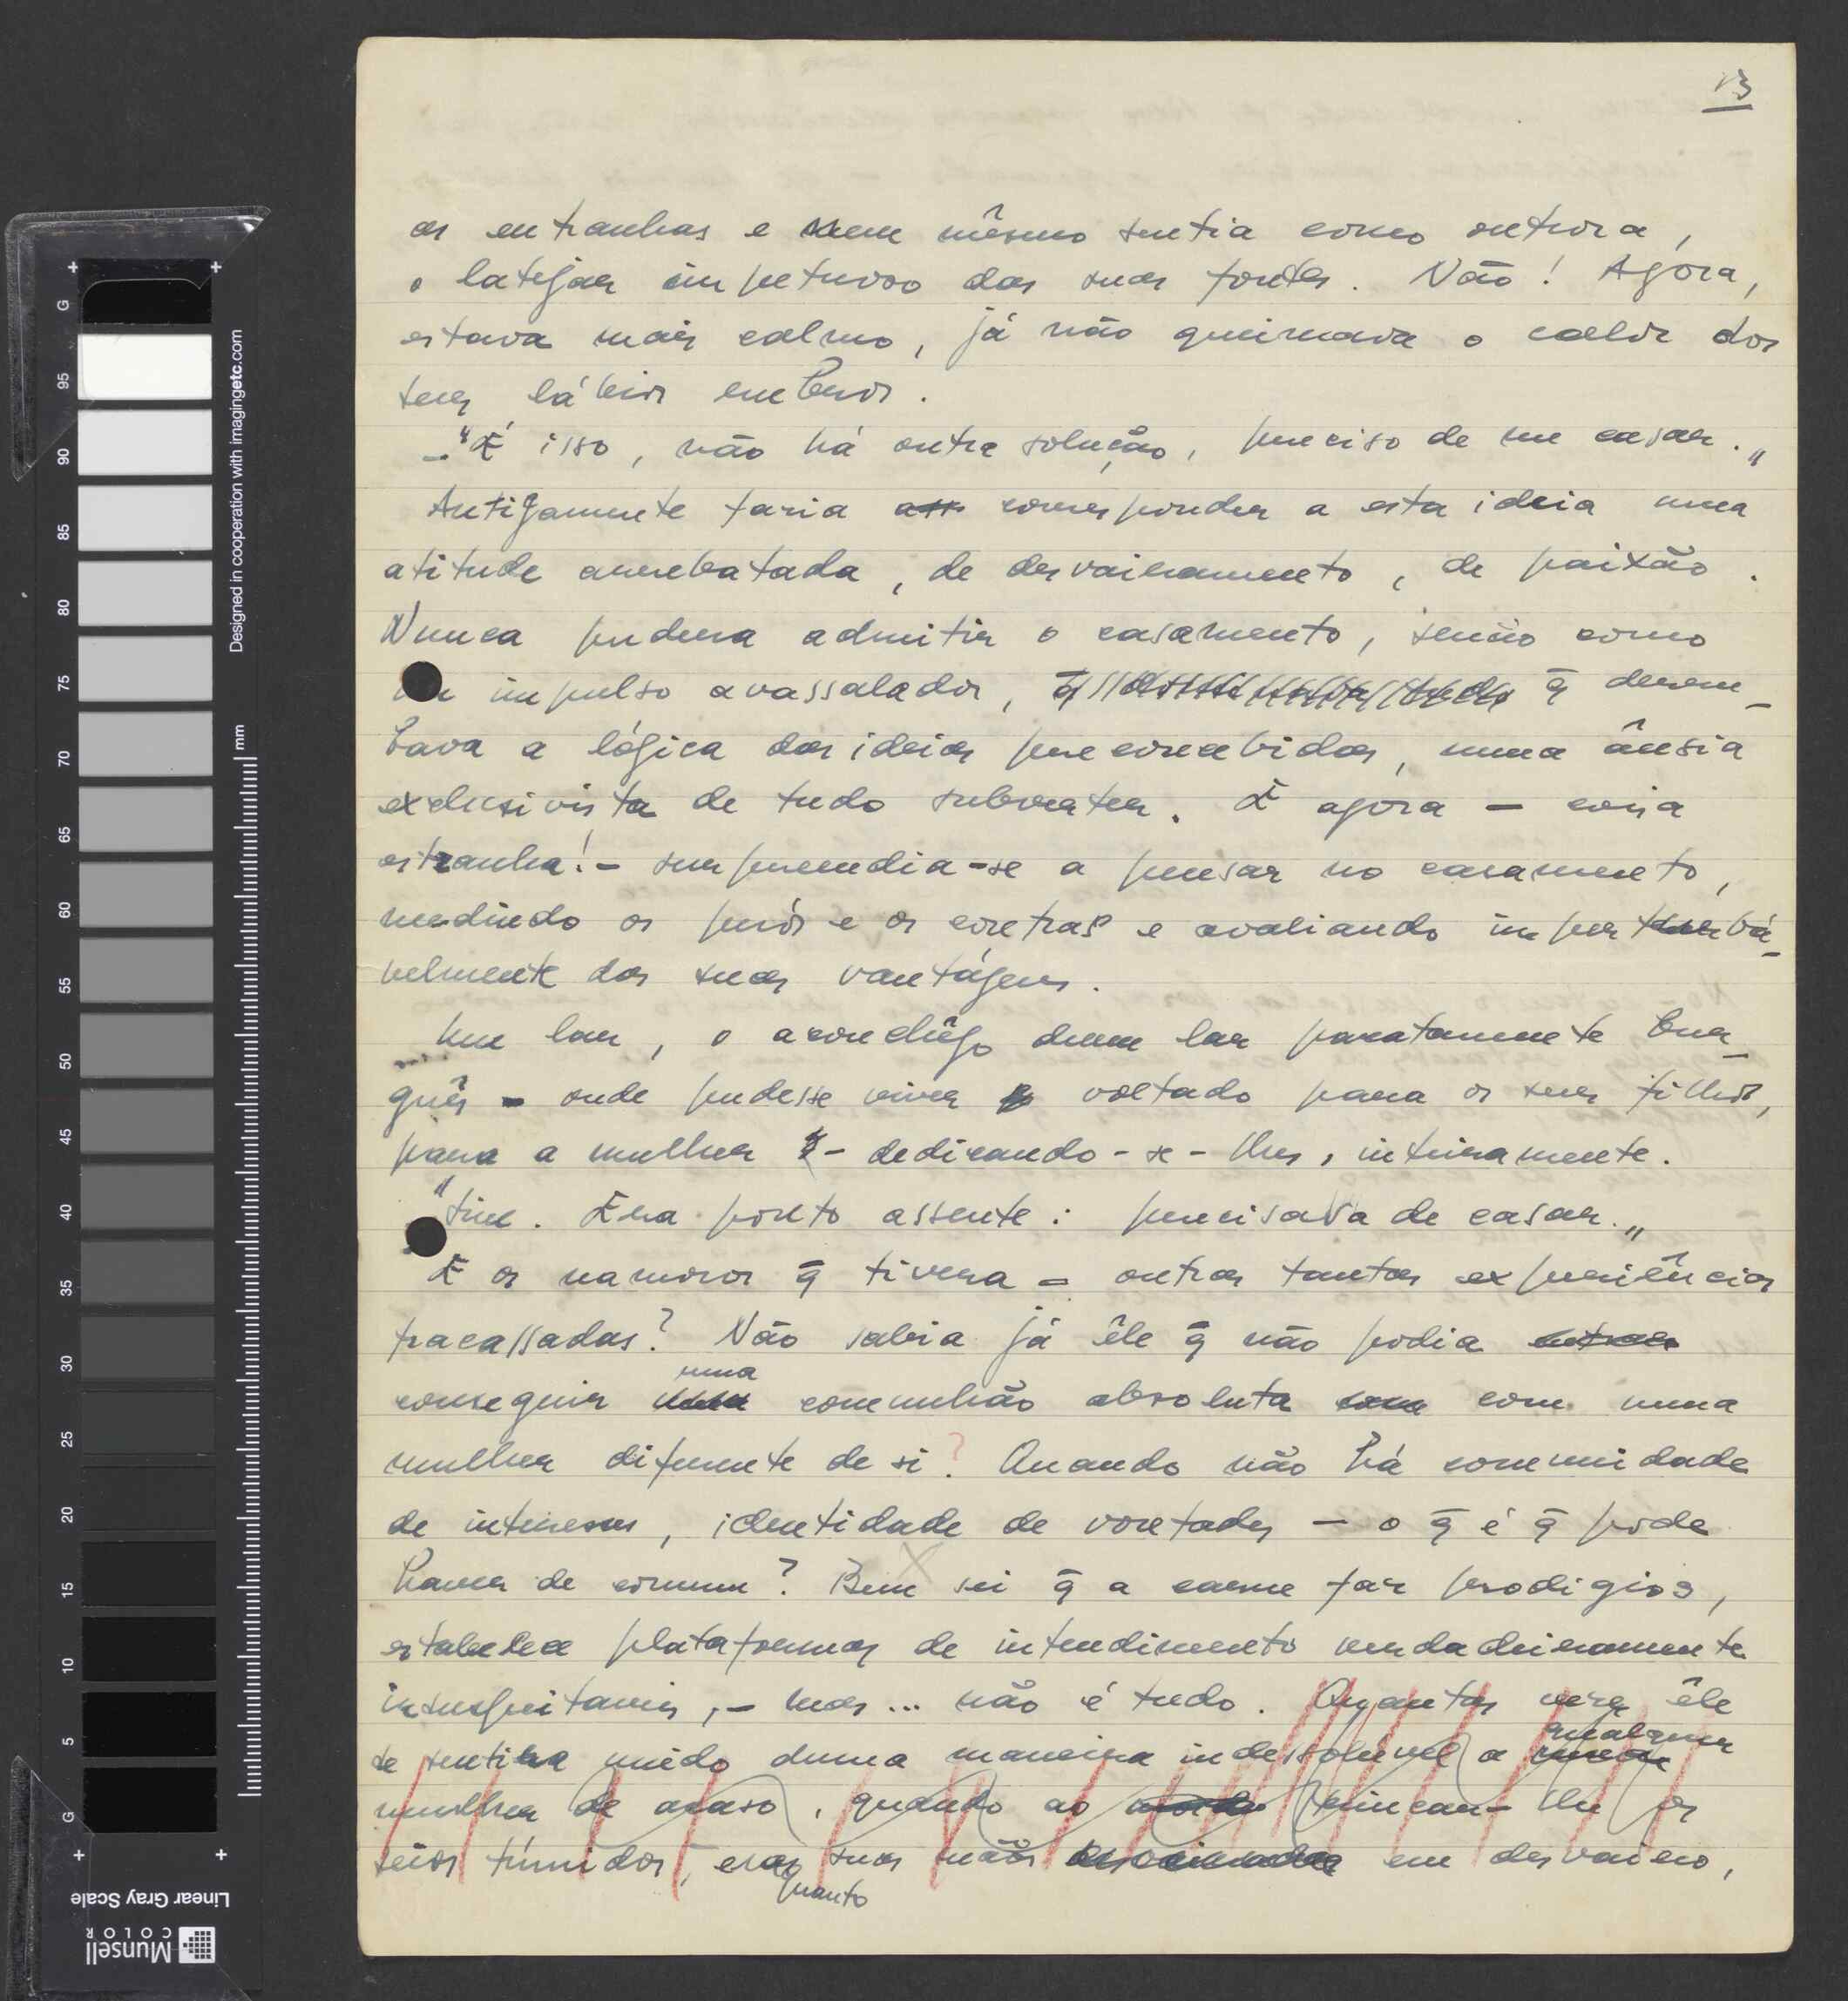 13
as entranhas e nem mêsmo sentia como outrora,
o latejar impetuoso das suas fontes. Não! Agora,
estava mais calmo, já não queimava o calor dos
seus lábios
– "É isso, não há outra solução, preciso de me casar."
Antigamente faria corresponder a esta ideia uma
atitude arrebatada, de desvairamento, de paixão.
Nunca pudera admitir o casamento, senão como
um impulso avassalador, q̄ derru-
bava a lógica das ideias preconcebidas, numa ânsia
exclusivista de tudo subverter. E agora – coisa
estranha! – surpreendia-se a pensar no casamento,
medindo os prós e os contras e avaliando imperturbà-
velmente das suas vantágens.
Um lar, o aconchêgo dum lar pacatamente bur-
guês – onde pudesse viver voltado para os seus filhos,
para a mulher – dedicando-se-lhes, inteiramente.
"Sim. Era ponto assente: precisava de casar."
E os namoros q̄ tivera – outras tantas experiências
fracassadas? Não sabia já êle q̄ não podia
conseguir uma comunhão absoluta com uma
mulher diferente de si? Quando não há comunidade
de interesses, identidade de vontades – o q̄ é q̄ pode
haver de comum? Bem sei q̄ a carne faz prodigios,
estabelece plataformas de intendimento verdadeiramente
insuspeitaveis, – mas... não é tudo. Quantas vezes êle
se sentira unido duma maneira indessoluvel a qualquer
mulher de acaso, quando ao trincar-lhe os
seios túmidos, enquanto suas mãos em desvairo,
Munsell
COLOR
Linear Gray Scale
Designed in cooperation with imagingetc.com
mm
G
95
90
85
80
75
70
65
60
55
50
45
40
35
30
25
20
15
10
5
G